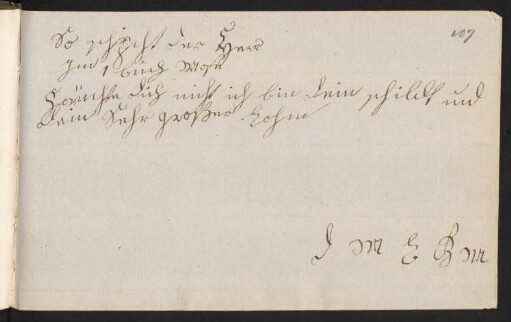 107
So spricht der Herr
Im 1 buch Mose
Förchte dich nicht ich bin dein schildt und
dein Sehr großer Lohn
J M E B M